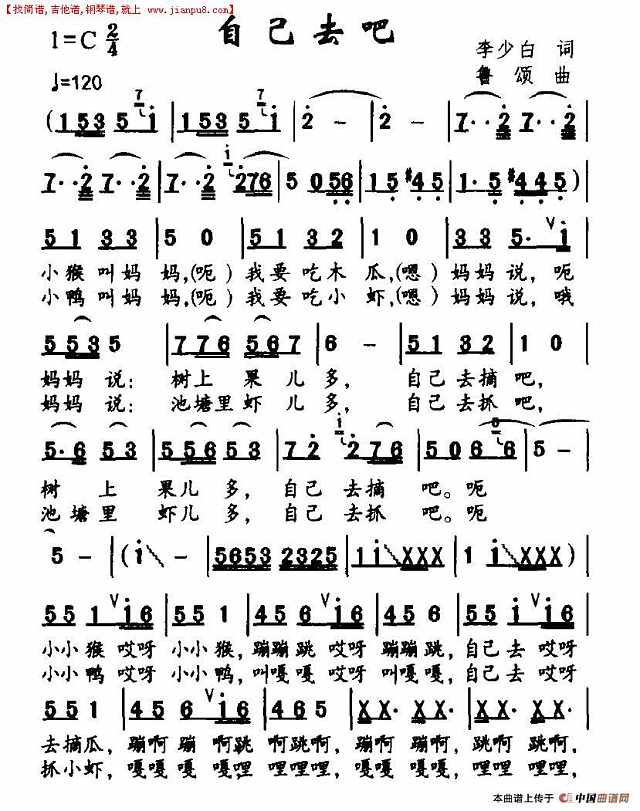 【找简谱,吉他谱,钢琴谱,就上 www.jianpu8.com】
自己去吧
1=C 2/4
李少白 词
鲁颂 曲
♩=120
(1 5 3 5 i | 1 5 3 5 i | 2 - | 2 - | 7·· 2 7·· 2 |
7·· 2 7·· 2 | 7·· 2 2 7 6 | 5 0 5 6 | 1 5 #4 5 | 1· 5 #4 4 5 )
5 1 3 3 | 5 0 | 5 1 3 2 | 1 0 | 5 5· i
小猴叫妈 妈,(呃) 我要吃木 瓜,(嗯) 妈妈说, 呃
小鸭叫妈 妈,(呃) 我要吃小 虾,(嗯) 妈妈说, 哦
5 5 3 5 | 7 7 6 5 6 | 6 - | 5 1 3 2 | 1 0
妈妈 说: 树上 果 儿 多, 自己去摘 吧,
妈妈 说: 池塘里虾 儿 多, 自己去抓 吧,
5· 6 5 3 | 5 5 6 5 3 | 7 2 2 7 6 | 5 0 6 6 | 5 -
树 上 果儿 多, 自己 去摘 吧。呃
池塘 里 虾儿 多, 自己 去抓 吧。呃
5 - | ( i - | 5 6 5 3 2 3 2 5 | 1 i XXX | 1 i XXX )
5 5 1 i 6 | 5 5 1 | 4 5 6 i 6 | 4 5 6 | 5 5 i i 6
小小 猴 哎呀 小小 猴, 蹦蹦 跳 哎呀 蹦蹦 跳, 自己 去 哎呀
小小 鸭 哎呀 小小 鸭, 叫嘎 嘎 哎呀 叫嘎 嘎, 自己 去 哎呀
5 5 1 | 4 5 6 i 6 | 4 6 5 | X X· X X· | X X· X X·
去摘 瓜, 蹦啊 蹦 啊跳 啊跳 啊, 蹦啊 蹦啊 跳啊 跳啊,
抓小 虾, 嘎嘎 嘎 嘎哩 哩哩 哩, 嘎嘎 嘎嘎 哩哩 哩哩,
本曲谱上传于 中国曲谱网